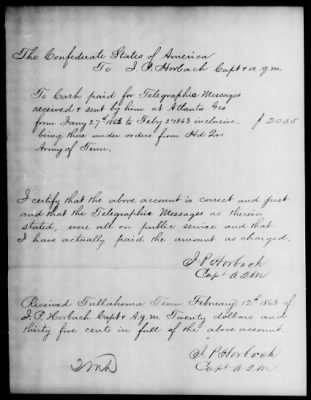 The Confederate States of America
To J. P. Horbach Capt & a.q.m
To Cash paid for Telegraphic Messages
received & sent by him at Atlanta Geo
from Jany 27th 1863 to Feby 2d 1863 inclusive. $ 20.35
being there under orders from Hd Qrs
Army of Tenn.
I certify that the above account is correct and just
and that the Telegraphic Messages as therein
stated, were all on public service and that
I have actually paid the amount as charged.
J. P. Horbach
Capt A.Q.M
Received Tullahoma Tenn February 12th 1863 of
J. P. Horbach Capt & A.q.m Twenty dollars and
thirty five cents in full of the above account.
J. P. Horbach
Capt A.Q.M